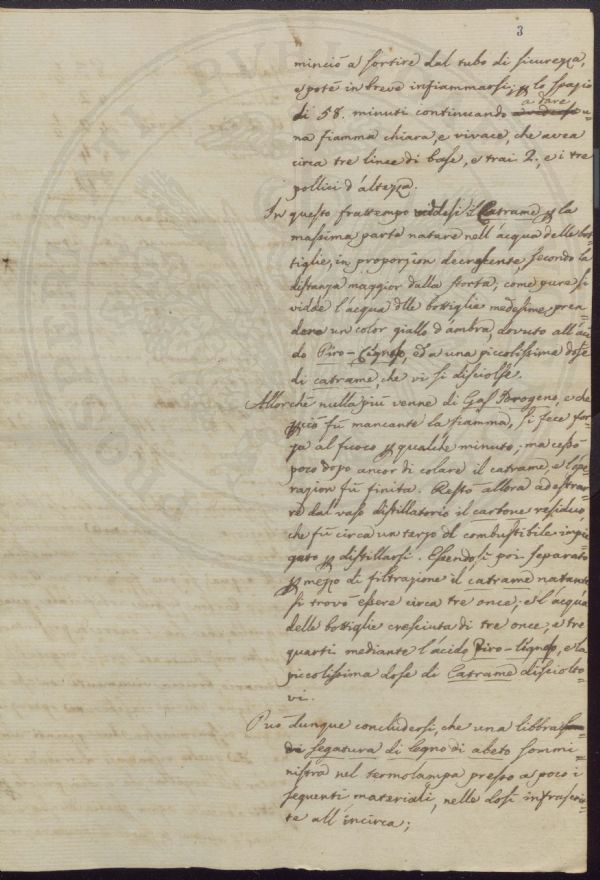 3
minciò a sortire dal tubo di sicurezza,
e potè in breve infiammarsi; p lo spazio
di 58. minuti continuando a dare u-
na fiamma chiara, e vivace, che avea
circa tre linee di base, e trai 2., e i tre
pollici d'altezza.
In questo frattempo viddesi il Catrame p la
massima parte natare nell'acqua delle bot-
tiglie, in proporzion decrescente, secondo la
distanza maggior dalla storta, come pure si
vidde l'acqua dlle bottiglie medesime pren-
dere un color giallo d'ambra, dovuto all'aci-
do Piro-Lignoso, ed a una piccolissima dose
di catrame, che vi si disciolse.
Allorchè nulla più venne di Gas Idrogeno, e che
pciò fù mancante la fiamma, si fece for-
za al fuoco p qualche minuto; ma cessò
poco dopo ancor di colare il catrame, e l'ope-
razion fù finita. Restò allora ad estrar-
re dal vaso distillatorio il carbone residuo,
che fù circa un terzo dl combustibile impie-
gato p distillarsi. Essendosi poi separato
p mezzo di filtrazione il catrame natante
si trovò essere circa tre once; e l'acqua
delle bottiglie cresciuta di tre once, e tre
quarti mediante l'acido Piro-lignoso, e la
piccolissima dose di Catrame disciolto-
vi.
Può dunque concludersi, che una libbra
di segatura di legno di abeto sommi-
nistra nel termolampa presso a poco i
seguenti materiali, nelle dosi infrascrit-
te all'incirca;